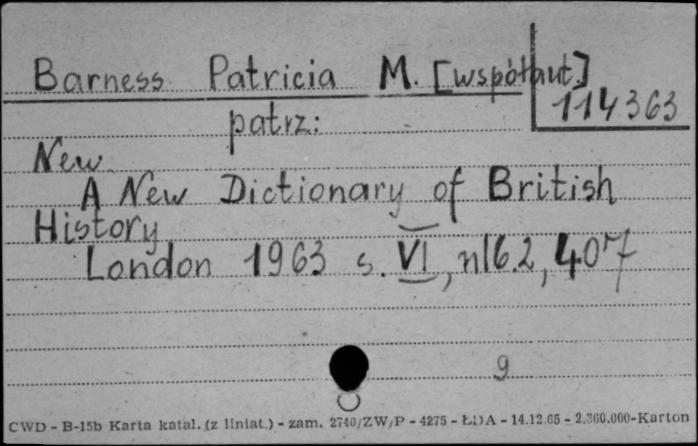 Barness Patricia M. [współaut.]
114363
patrz:
New
A New Dictionary of British
History
London 1963 s. VI, nlb. 2, 407
9
CWD - B-15b Karta katal. (z liniat.) - zam. 2740/ZW/P - 4275 - ŁDA - 14.12.65 - 2.360.000-Karton